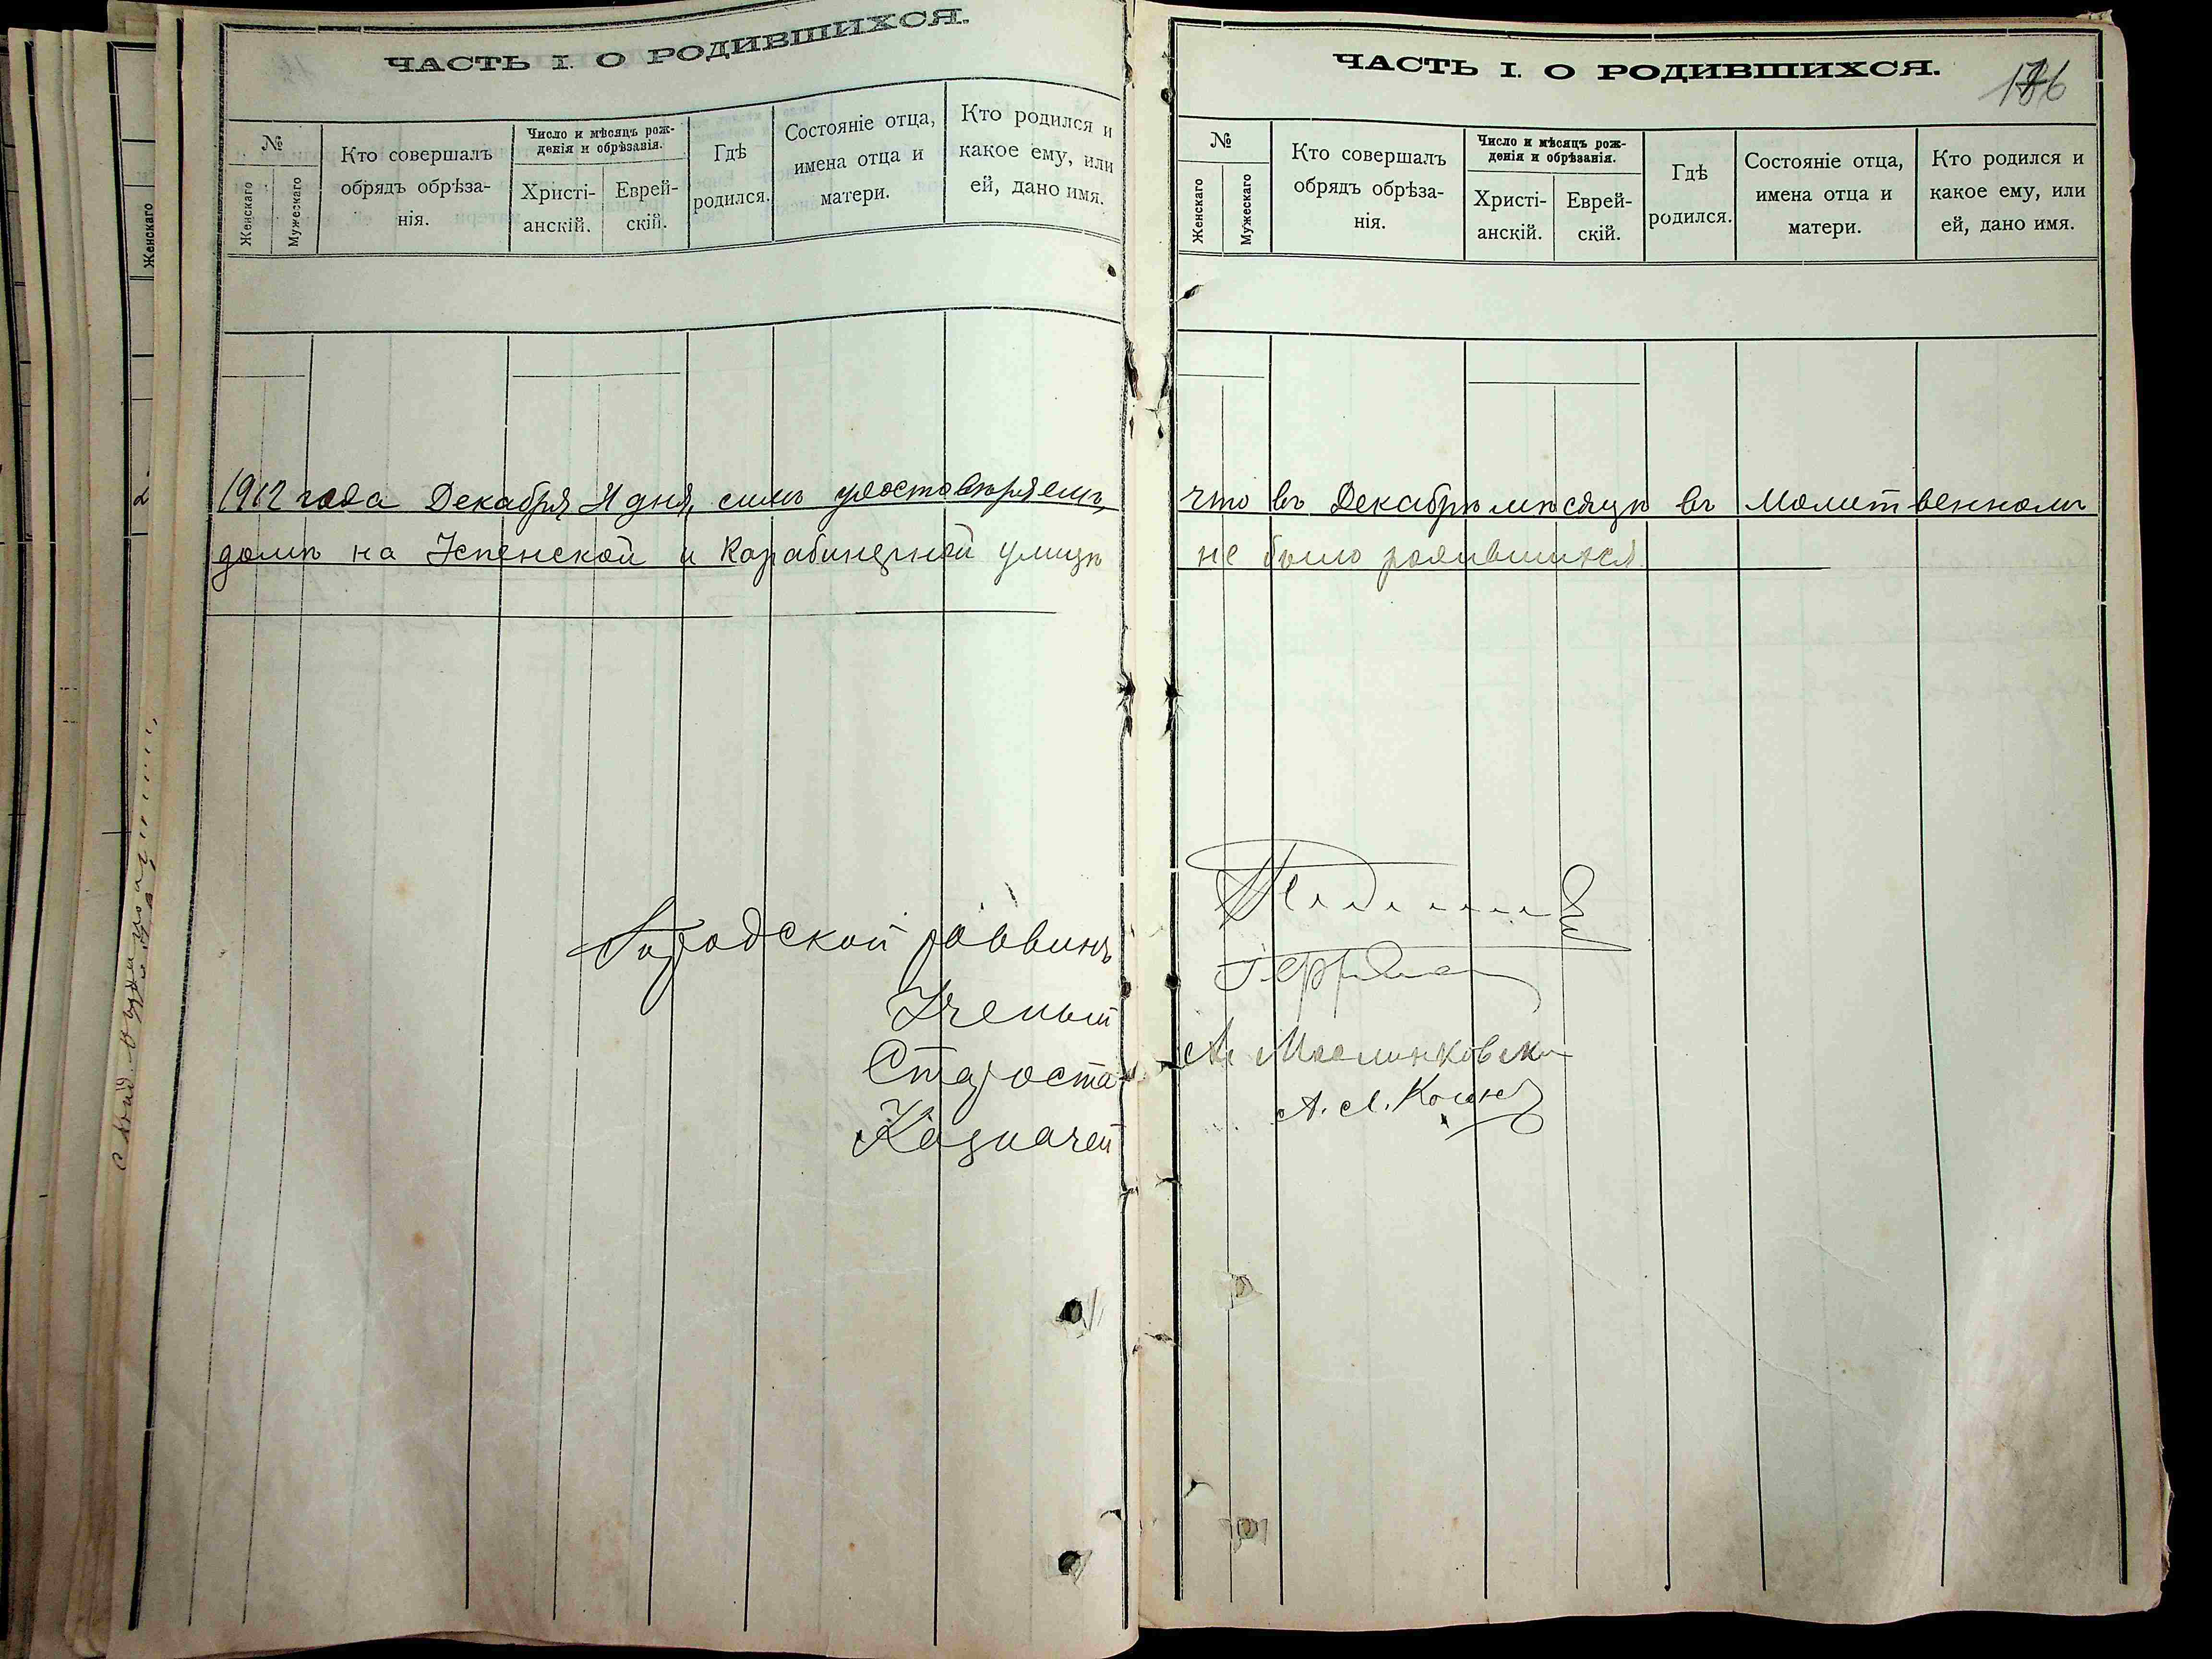 ЧАСТЬ I. О РОДИВШИХСЯ.
№
Женскаго
Мужескаго
Кто совершалъ
обрядъ обрѣза-
нія.
Число и мѣсяцъ рож-
денія и обрѣзанія.
Христі-
анскій.
Еврей-
скій.
Гдѣ
родился.
Состояніе отца,
имена отца и
матери.
Кто родился и
какое ему, или
ей, дано имя.
1912 года Декабря дня, симъ удостовѣряемъ,
домѣ на Успенской и Карабинерной улицѣ
Городской раввинъ
Ученый
Староста
Казначей
ЧАСТЬ I. О РОДИВШИХСЯ.
№
Женскаго
Мужескаго
Кто совершалъ
обрядъ обрѣза-
нія.
Число и мѣсяцъ рож-
денія и обрѣзанія.
Христі-
анскій.
Еврей-
скій.
Гдѣ
родился.
Состояніе отца,
имена отца и
матери.
Кто родился и
какое ему, или
ей, дано имя.
что въ Декабрѣ мѣсяцѣ въ Молитвенномъ
не было родившихся.
Женскаго
2